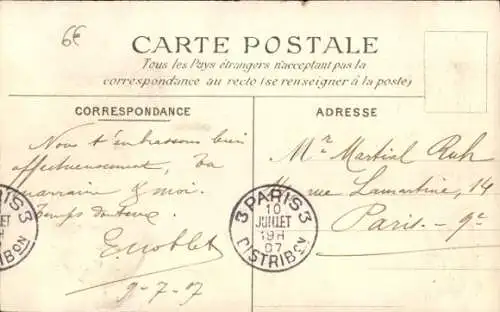 6€
CARTE POSTALE
Tous les Pays étrangers n'acceptent pas la
correspondance au recto (se renseigner à la poste)
CORRESPONDANCE
Nous t'embrassons bien
affectueusement, ta
marraine & moi.
Temps
9-7-07
ADRESSE
Mr Martial Ruh
rue Lamartine, 14
Paris - 9e
3 PARIS 3
10
JUILLET
19H
07
DISTRIBON